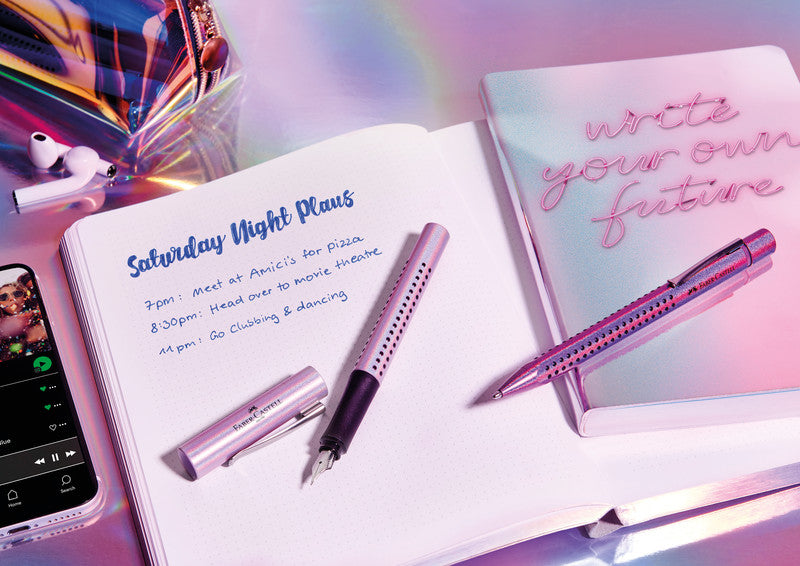 Saturday Night Plans
7pm: Meet at Amici's for pizza
8:30pm: Head over to movie theatre
11pm: Go Clubbing & dancing
write
your own
future
FABER-CASTELL
FABER-CASTELL
Home
Search